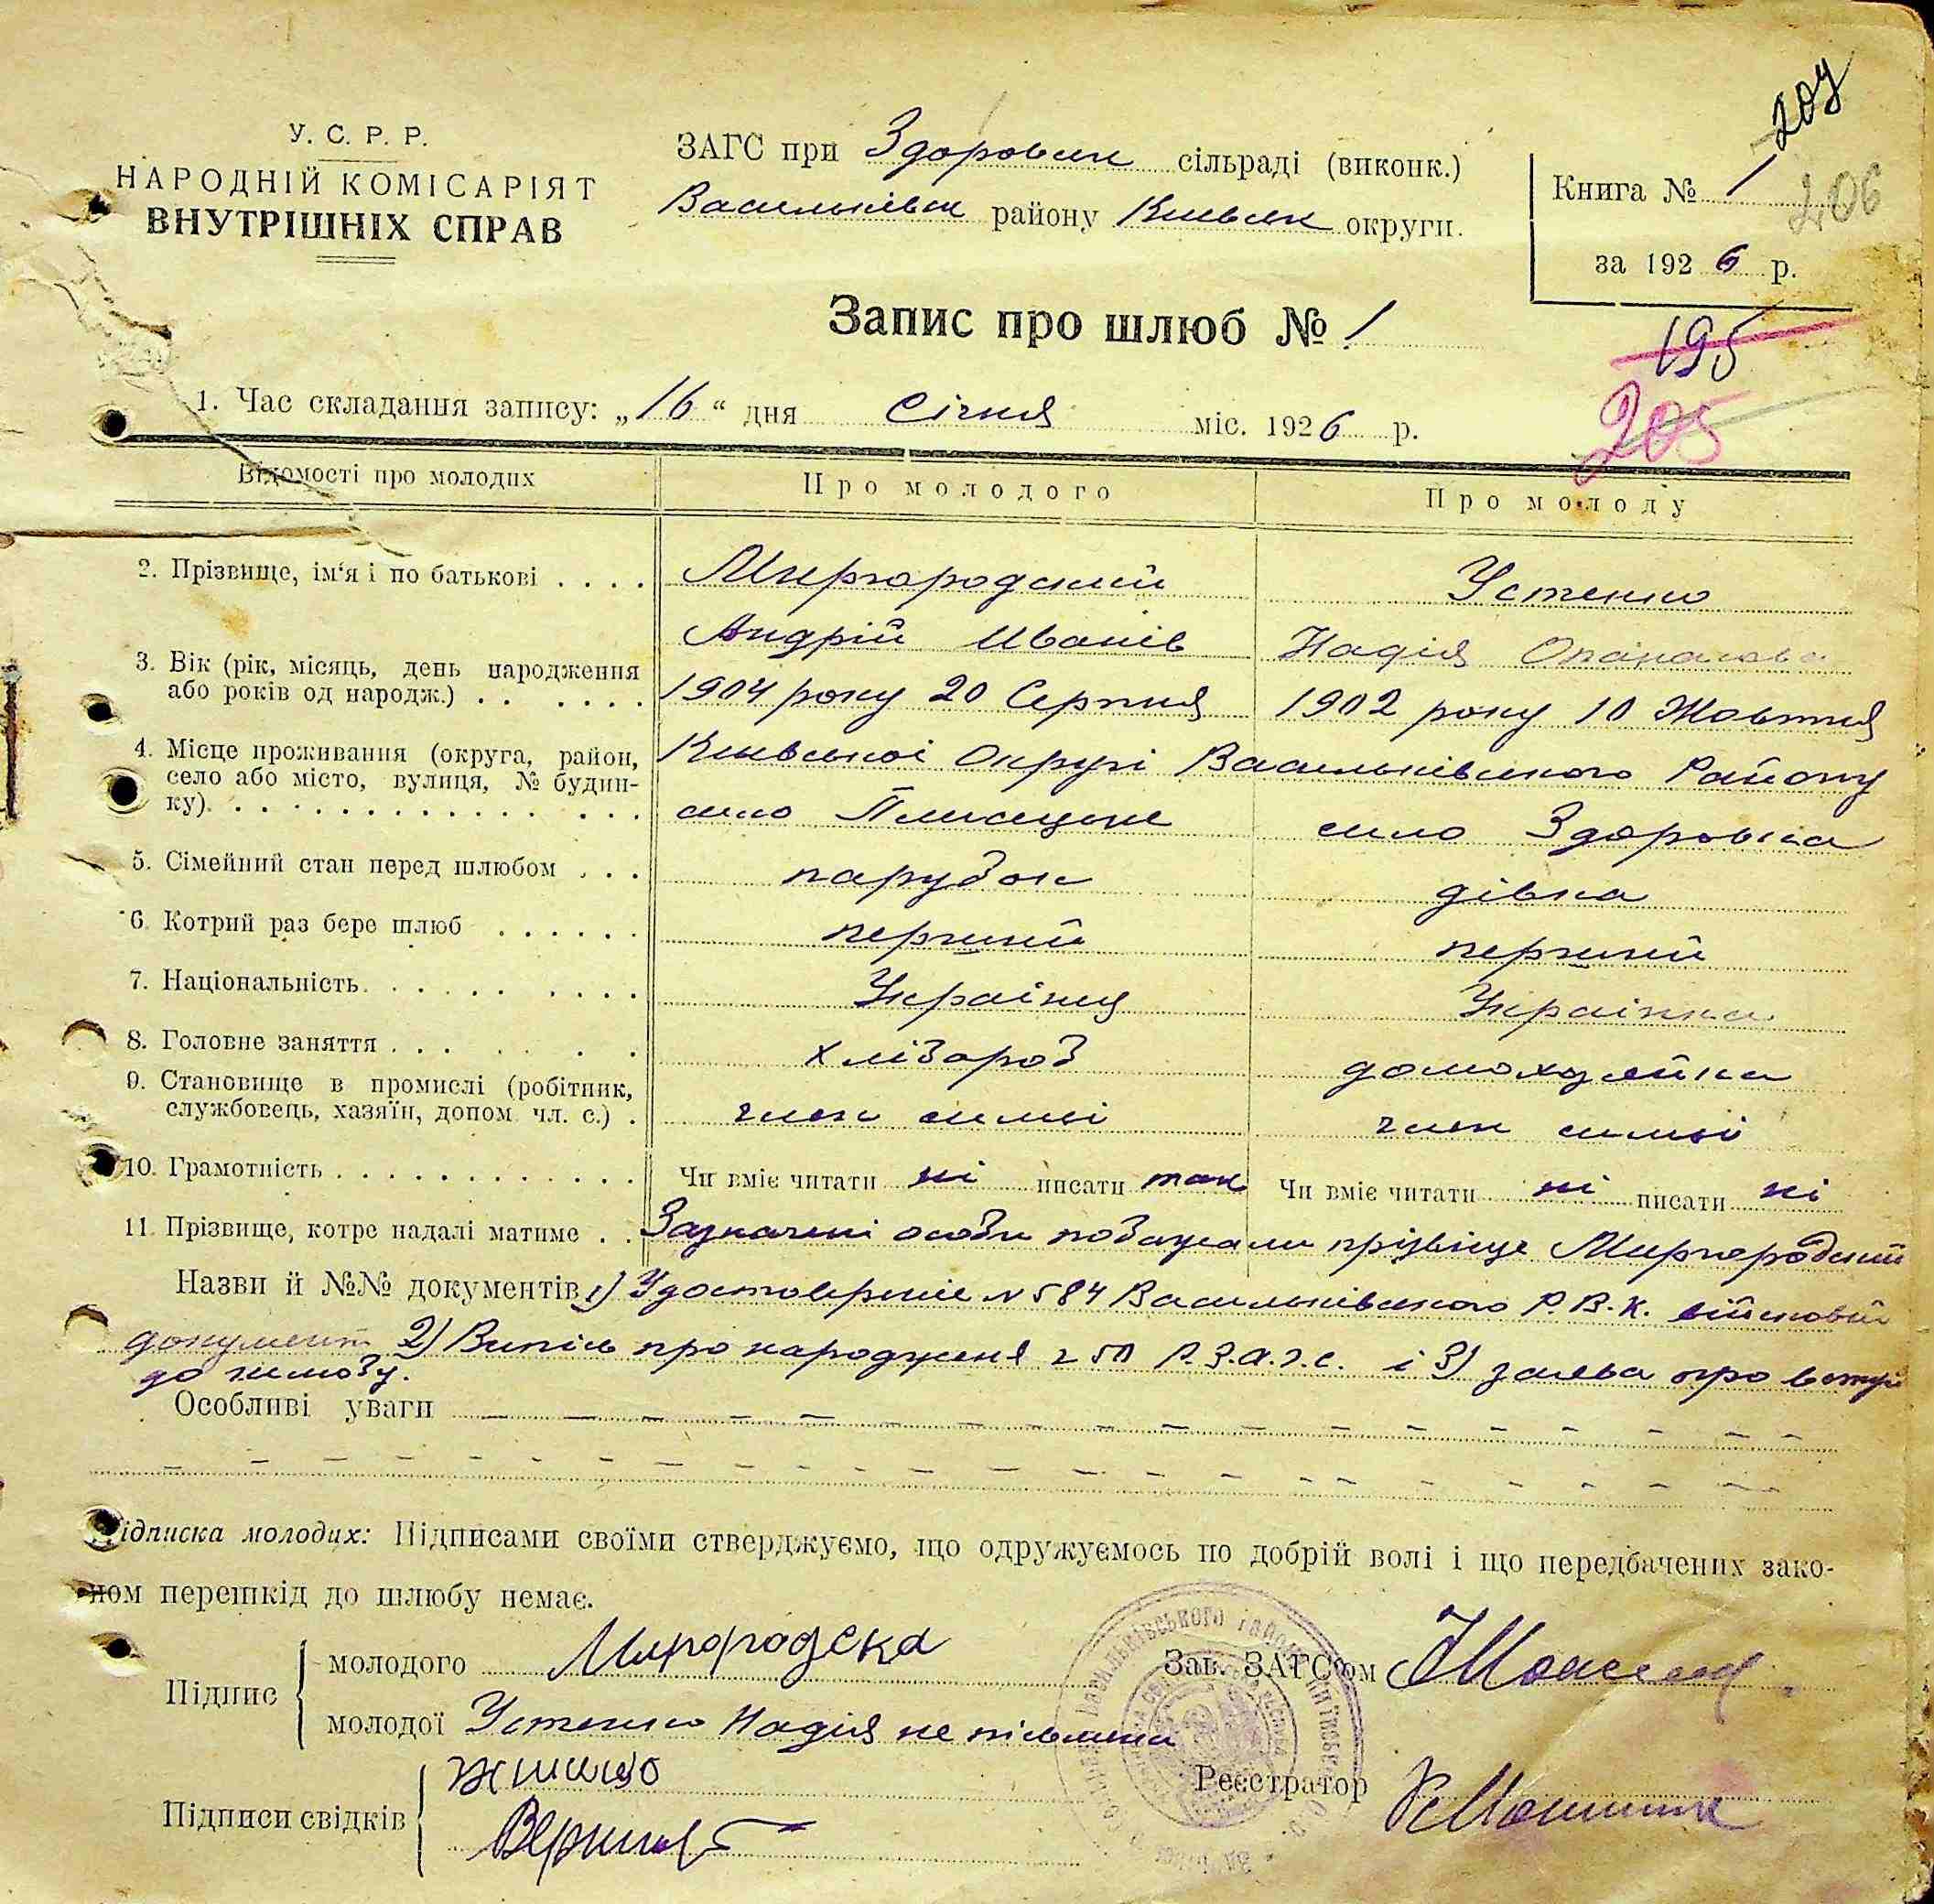 204
У. С. Р. Р.
НАРОДНІЙ КОМІСАРІЯТ
ВНУТРІШНІХ СПРАВ
ЗАГС при Здоровськ сільраді (виконк.)
Васильківськ району Київськ округи.
Книга № 1
206
за 1926 р.
Запис про шлюб № 1
195
205
1. Час складання запису: „16“ дня Січня міс. 1926 р.
Відомості про молодих Про молодого Про молоду
2. Прізвище, ім‘я і по батькові . . . . Миргородский Устенко
Андрій Иванів Надія Опанасова
3. Вік (рік, місяць, день народження
або років од народж.) . . . . . . 1904 року 20 Серпня 1902 року 10 Жовтня
4. Місце проживання (округа, район,
село або місто, вулиця, № будин-
ку) . . . Київської Округі Васильківського Району
село Плисецьке село Здоровка
5. Сімейний стан перед шлюбом . . . парубок дівка
6. Котрий раз бере шлюб . . . . . . перший перший
7. Національність . . . . . . . . . Українця Українка
8. Головне заняття . . . . . . хлібороб домохозяйка
9. Становище в промислі (робітник,
службовець, хазяїн, допом. чл. с.) . член симьі член симьі
10. Грамотність . . . . . . . . . . . . Чи вміє читати ні писати так Чи вміє читати ні писати ні
11. Прізвище, котре надалі матиме . . Зазначені особи побажали прізвіще Миргородский
Назви й №№ документів 1) Удостоверініє № 584 Васильківського Р.В.К. війсковій
документ 2) Випісь про народженя з Р.З.А.Г.С. і 3) заява про вступ
до шлюбу.
Особливі уваги
Підписка молодих: Підписами своїми стверджуємо, що одружуємось по добрій волі і що передбачених зако-
ном перешкід до шлюбу немає.
Підпис
молодого Миргородска
Зав. ЗАГС'ом
молодої Устенко Надія не письмена
Реєстратор
Підписи свідків